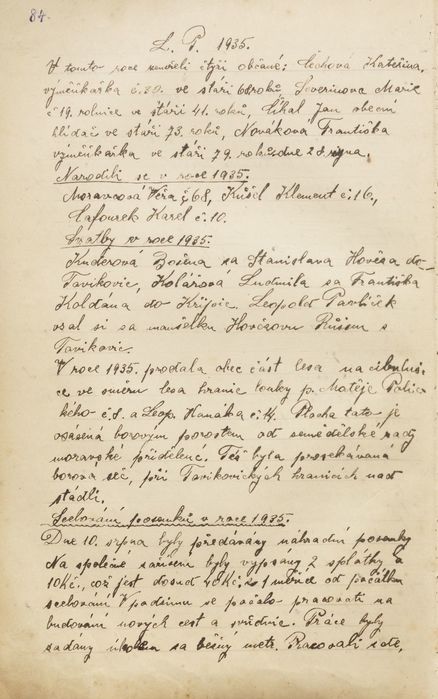 84.
L. P. 1935.
V tomto roce zemřeli čtyři občané: Čechová Kateřina,
výměnkářka č. 20. ve stáří roků, Severinova Marie
č 19. rolnice ve stáří 41. roků, Číhal Jan obecní
hlídač ve stáří 73. roků, Novákova Františka
výměnkářka ve stáří 79. roků dne 28. října.
Narodili se v roce 1935.
Moravcová Věra č 68, Kušel Klement č. 16.,
Cafourek Karel č. 10.
Svatby v roce 1935.
Kuderová Božena za Stanislava Hověza do
Tavikovic, Kolářová Ludmila za Františka
Koldána do Křípic. Leopold Pavlíček
vzal si za manželku Hovězovu Růženu z
Tavikovic.
V roce 1935. prodala obec část lesa na
ce ve směru lesa hranic louky p. Matěje Polic
kého č. 8. a Leop. Hanáka č. 14. Plocha tato je
osázená borovým porostem od zemědělské rady
moravské přidělené. Též byla prosekávaná
borová seč, při Tavikovických hranicích nad
stádli.
Scelování pozemků v roce 1935.
Dne 10. srpna byly předávány náhradní pozemky
Na společné zařízení byly vypsány 2 splátky à
10 Kč., což jest dosud 40 Kč. z 1 měřice od počátku
scelování. V podzimu se počalo pracovati na
budování nových cest a svodnic. Práce byly
zadány úkolem za běžný metr. Pracovali zde,